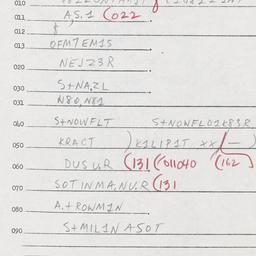 010
011 A,S.1 (022
012 8
013 OFM7EM1S
020 NEJ23R
030 S+NA,ZL
031 N80,N81
040 S+NOWFLT S+NOWFL01K83R
050 KRACT )K1LIP1T xx/—)
060 DUSUR (131 (011040 (162)
070 SOTINMA,NU,R (131
080 A.+ROWM1N
090 S+MIL1N ASOT